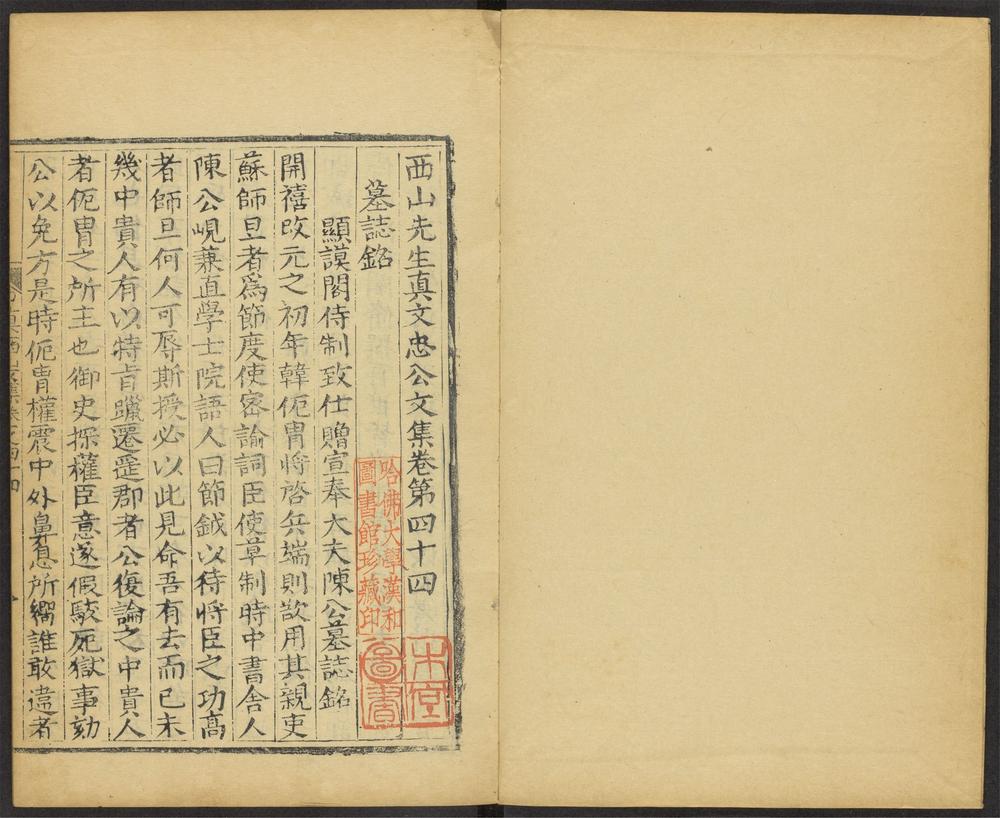 西山先生真文忠公文集卷第四十四
墓誌銘
顯謨閣侍制致仕贈宣奉大夫陳公墓誌銘
開禧改元之初年韓侂冑將啓兵端則欲用其親吏
蘇師旦者爲節度使密諭詞臣使草制時中書舎人
陳公峴兼直學士院語人曰節鉞以待將臣之功高
者師旦何人可辱斯授必以此見命吾有去而已未
幾中貴人有以特㫖躐遷遥郡者公復論之中貴人
者侂冑之所主也御史探權臣意遂假駮死獄事劾
公以免方是時侂冑權震中外鼻息所嚮誰敢違者
哈佛大學漢和
圖書館珍藏印
圖書